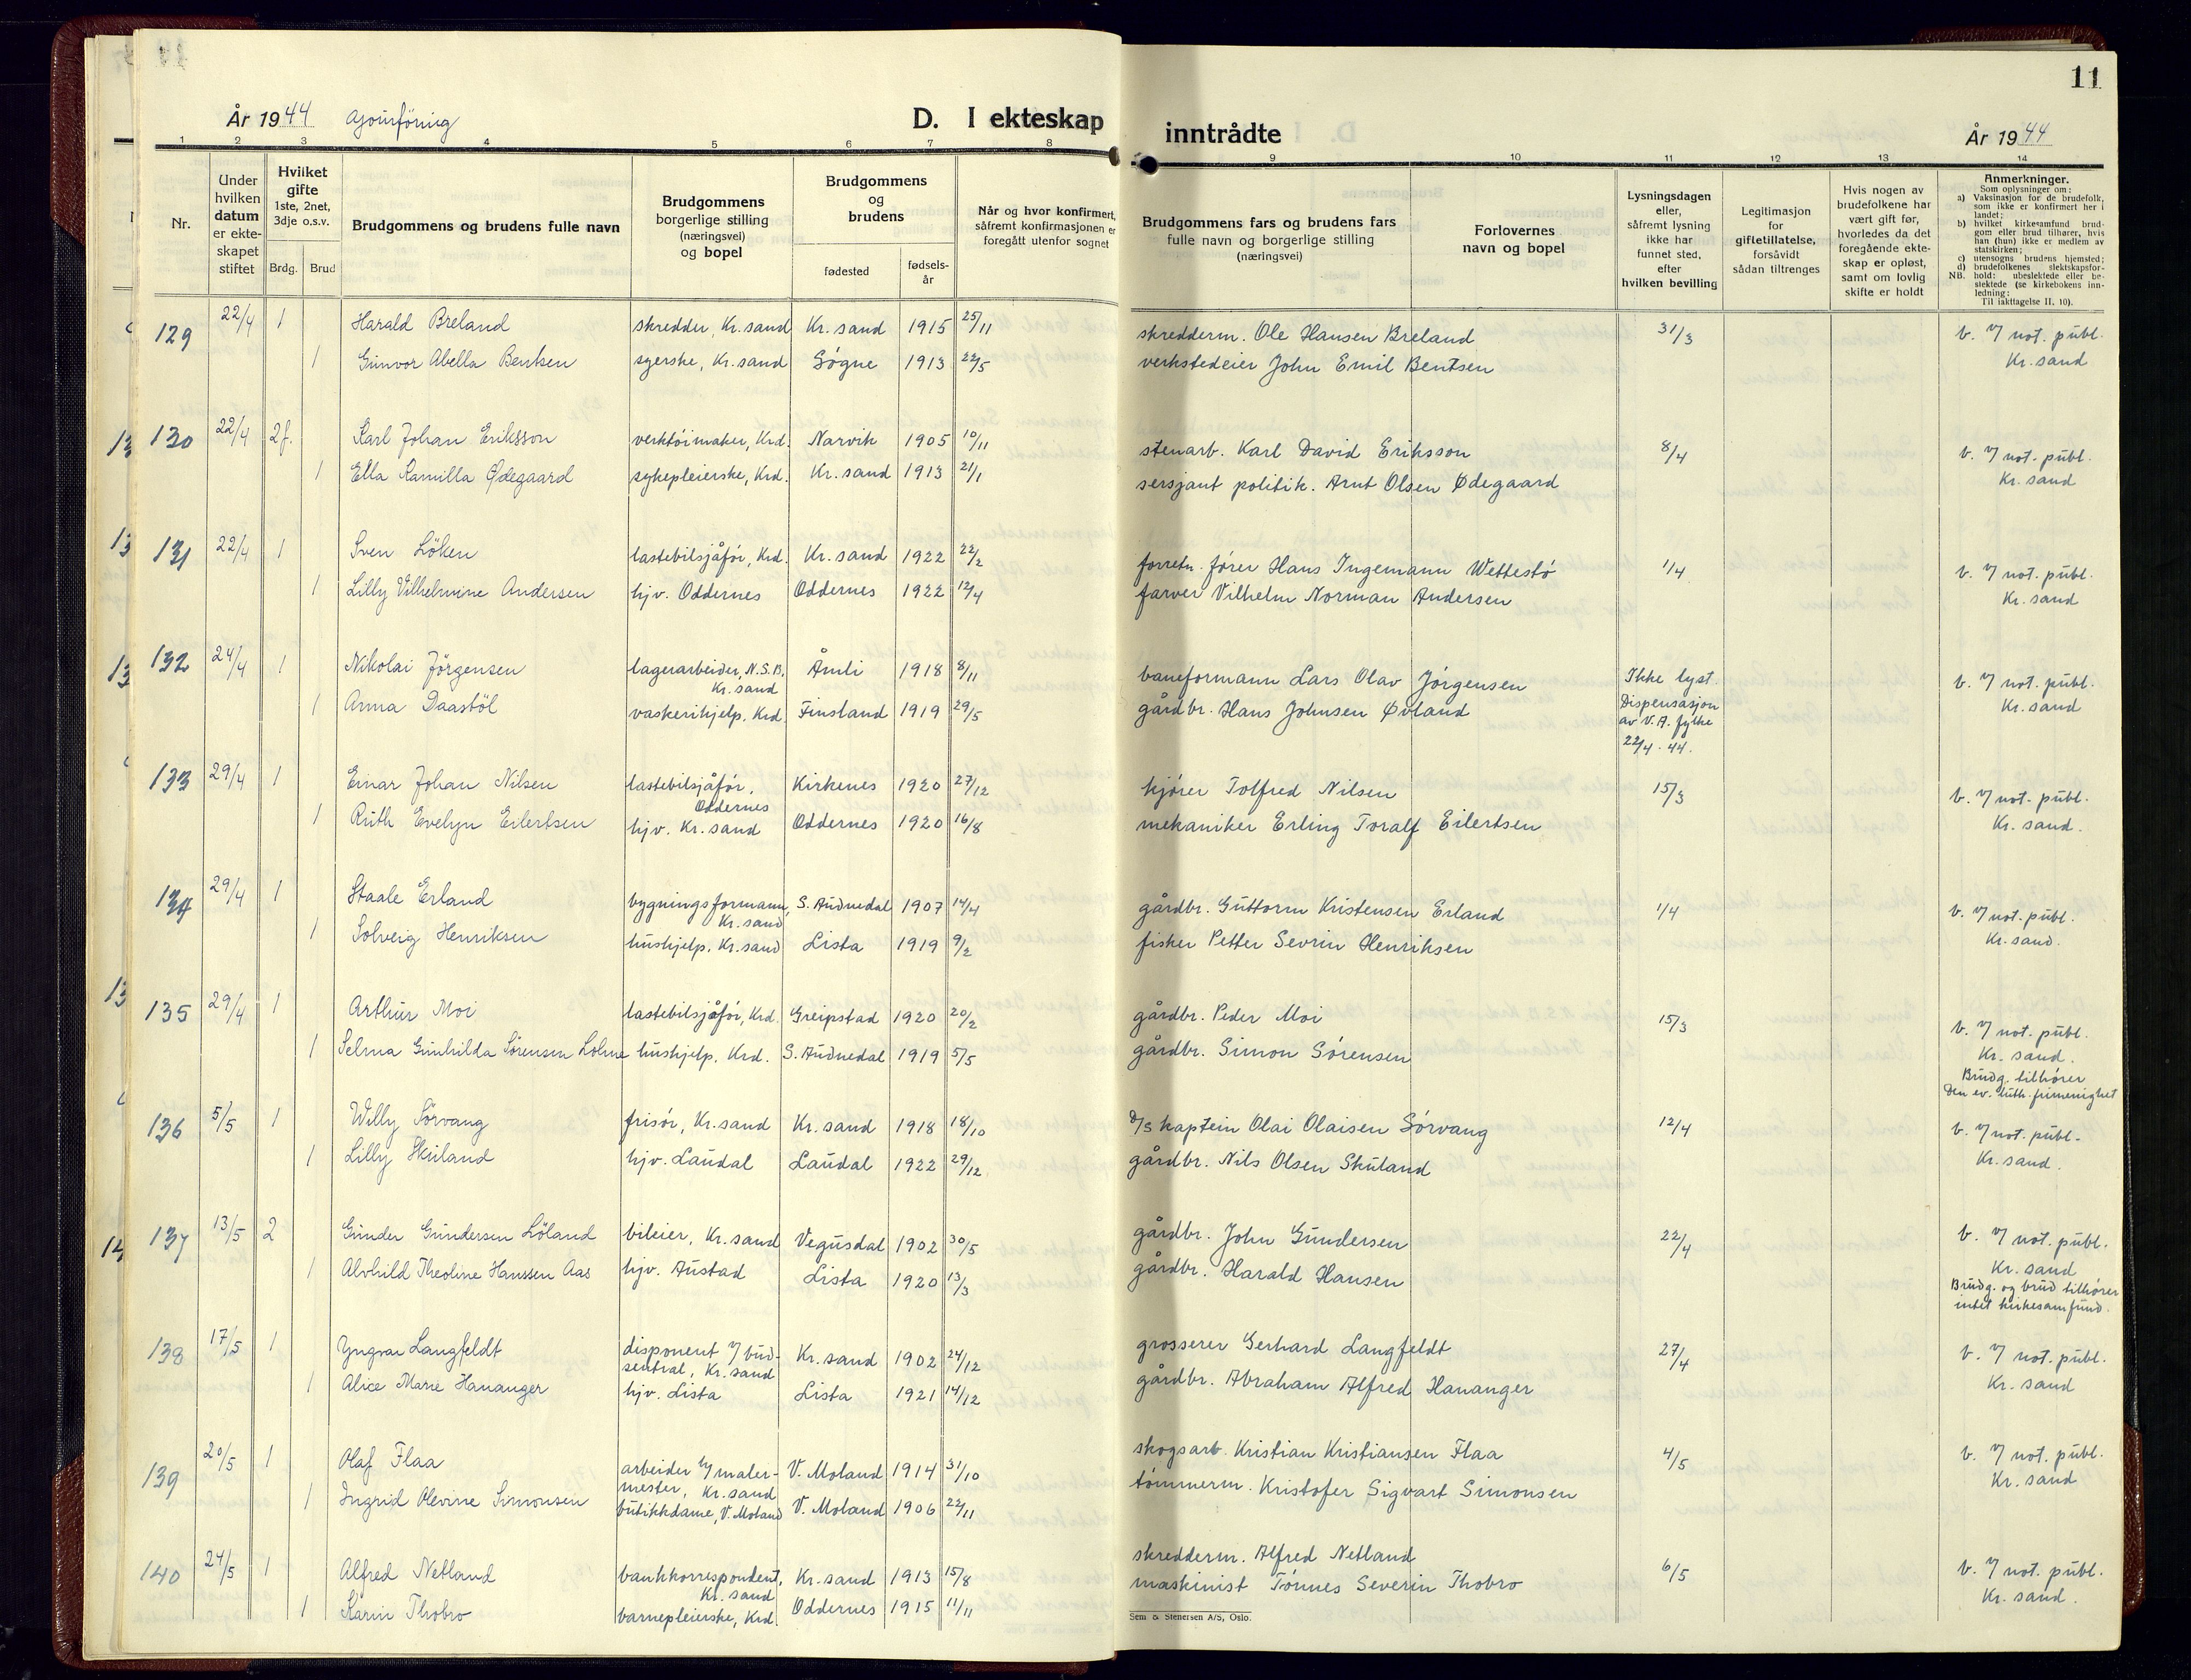 11
År 1944
D. I ekteskap inntrådte
År 1944
1 2 3 4 5 6 7 8 9 10 11 12 13 14
Nr.
Under hvilken datum er ekteskapet stiftet
Hvilket gifte 1ste, 2net, 3dje o.s.v.
Brdg. Brud
Brudgommens og brudens fulle navn
Brudgommens borgerlige stilling (næringsvei) og bopel
Brudgommens og brudens
fødested
fødsels-år
Når og hvor konfirmert, såfremt konfirmasjonen er foregått utenfor sognet
Brudgommens fars og brudens fars fulle navn og borgerlige stilling (næringsvei)
Forlovernes navn og bopel
Lysningsdagen eller, såfremt lysning ikke har funnet sted, efter hvilken bevilling
Legitimasjon for giftetillatelse, forsåvidt sådan tiltrenges
Hvis nogen av brudefolkene har vært gift før, hvorledes da det foregående ekteskap er opløst, samt om lovlig skifte er holdt
Anmerkninger.
Som oplysninger om:
a) Vaksinasjon for de brudefolk, som ikke er konfirmert her i landet;
b) hvilket kirkesamfund brudgom eller brud tilhører, hvis han (hun) ikke er medlem av statskirken;
c) utensogns brudens hjemsted;
d) brudefolkenes slektskapsforhold: ubeslektede eller beslektede (se kirkebokens innledning;
NB. Til iakttagelse II. 10).
129 22/4 1 Harald Breland skredder, Kr.sand Kr.sand 1915 25/11 skredderm. Ole Hansen Breland 31/3 v. n/ not. publ.
1 Gunvor Abella Bentsen syerske, Kr.sand Søgne 1913 22/5 verkstedeier John Emil Bentsen Kr.sand
130 22/4 2f. Karl Johan Eriksson verktöimaker, Krd. Narvik 1905 10/11 stenarb. Karl David Eriksson 8/4 v. n/ not. publ.
1 Ella Kamilla Ødegaard sykepleierske, Krd. Kr.sand 1913 21/1 sersjant politik. Arnt Olsen Ødegaard Kr.sand
131 22/4 1 Sven Löken lastebilsjåför, Krd. Kr.sand 1922 22/2 forretn. fører Hans Ingemann Wettestø 1/4 v. n/ not. publ.
1 Lilly Vilhelmine Andersen hjv. Oddernes Oddernes 1922 12/4 farver Vilhelm Norman Andersen Kr.sand
132 24/4 1 Nikolai Jörgensen lagerarbeider, N.S.B. Kr.sand Åmli 1918 8/11 baneformann Lars Olav Jörgensen Ikke lyst. v. n/ not. publ.
1 Anna Daastöl vaskerihjelp, Krd. Finsland 1919 29/5 gårdbr. Hans Johnsen Øvland Dispensasjon av V.A. fylke 22/4. 44. Kr.sand
133 29/4 1 Einar Johan Nilsen lastebilsjåför, Oddernes Kirkenes 1920 27/12 kjører Tolfred Nilsen 15/3 v. n/ not. publ.
1 Ruth Evelyn Eilertsen hjv. Kr.sand Oddernes 1920 16/8 mekaniker Erling Toralf Eilertsen Kr.sand.
134 29/4 1 Staale Erland bygningsformann, Kr.sand S. Audnedal 1907 14/4 gårdbr. Guttorm Kristensen Erland 1/4 v. n/ not. publ.
1 Solveig Henriksen hushjelp, Kr.sand Lista 1919 9/2 fisker Petter Sevrin Henriksen Kr.sand.
135 29/4 1 Arthur Moi lastebilsjåför, Krd. Greipstad 1920 20/2 gårdbr. Peder Moi 15/3 v. n/ not. publ.
1 Selma Gunhilda Sørensen Lohne hushjelp, Krd. S. Audnedal 1919 5/5 gårdbr. Simon Sörensen Kr.sand.
Brudg. tilhører
Den ev. luth. frimenighet
136 5/5 1 Willy Sörvang frisör, Kr.sand Kr.sand 1918 18/10 D/S kaptein Olai Olaisen Sörvang 12/4 v. n/ not. publ.
1 Lilly Skuland hjv. Laudal Laudal 1922 29/12 gårdbr. Nils Olsen Skuland Kr.sand.
137 13/5 2 Gunder Gundersen Löland bileier, Kr.sand Vegusdal 1902 30/5 gårdbr. John Gundersen 22/4 v. n/ not. publ.
1 Alvhild Theoline Hanssen Aas hjv. Austad Lista 1920 13/3 gårdbr. Harald Hansen Kr.sand
Brudg. og brud tilhører
intet kirkesamfund.
138 17/5 1 Yngvar Langfeldt disponent v/ budsentral, Kr.sand Kr.sand 1902 24/12 grosserer Gerhard Langfeldt 27/4 v. n/ not. publ.
1 Alice Marie Hananger hjv. Lista Lista 1921 14/12 gårdbr. Abraham Alfred Hananger Kr.sand
139 20/5 1 Olaf Flaa arbeider h/ malermester, Kr.sand V. Moland 1914 31/10 skogsarb. Kristian Kristiansen Flaa 4/5 v. n/ not. publ.
1 Ingrid Olevine Simonsen butikkdame, V. Moland V. Moland 1906 22/11 tömmerm. Kristofer Sigvart Simonsen Kr.sand
140 24/5 1 Alfred Netland bankkorrespondent, Kr.sand Kr.sand 1913 15/8 skredderm. Alfred Netland 6/5 v. n/ not. publ.
1 Karin Thobro barnepleierske, Krd. Oddernes 1915 11/11 maskinist Tönnes Severin Thobro Kr.sand.
Sem & Stenersen A/S, Oslo.